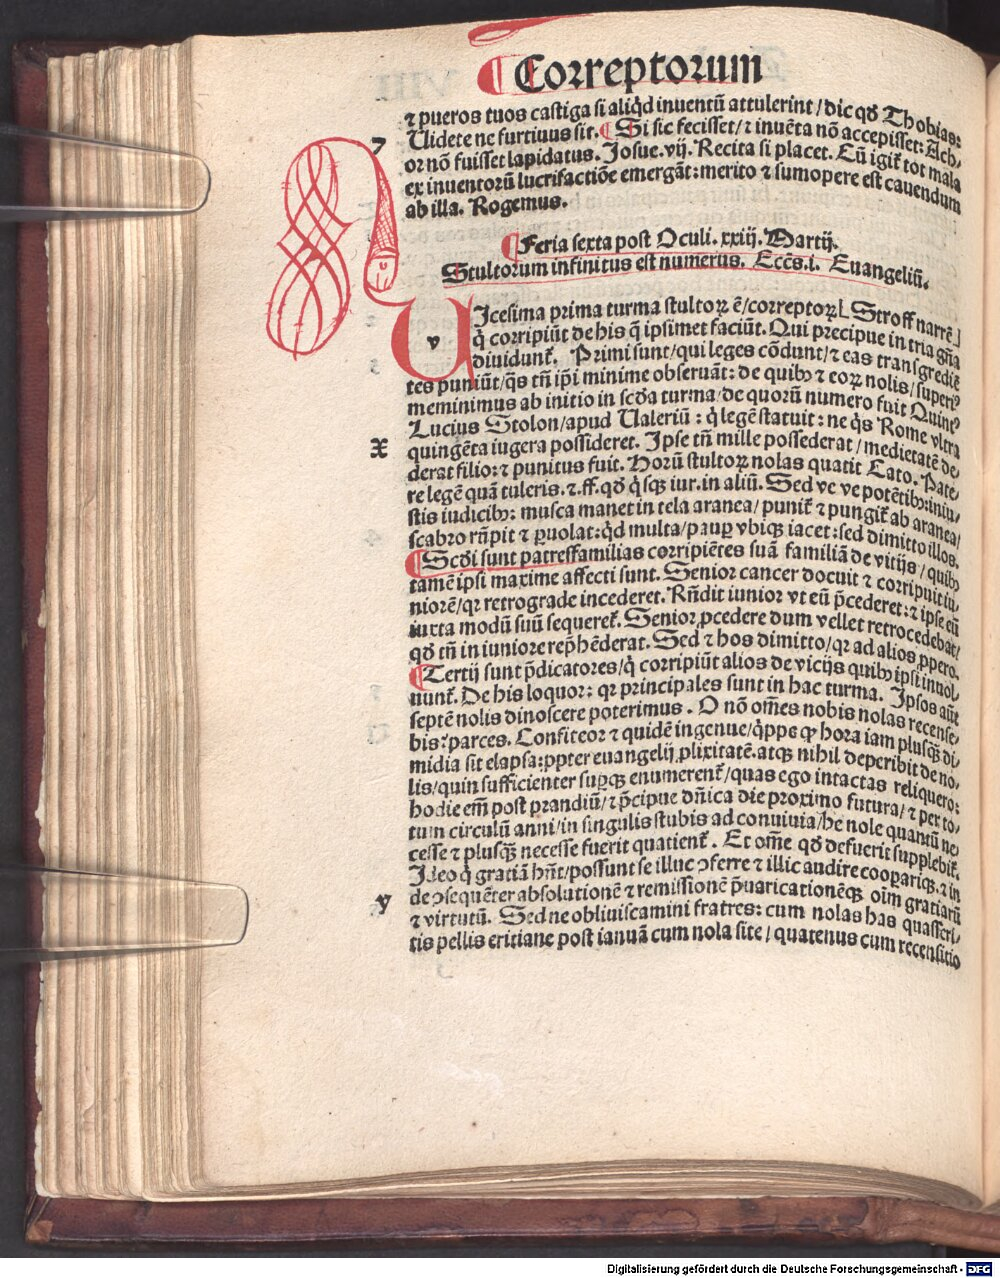 ¶ Correptorum
⁊ pueros tuos castiga si aliqͥd inuentū attulerint / dic qď Thobias:
Uidete ne furtiuus sit. ¶ Si sic fecisset / ⁊ inuēta nō accepisset: Ach-
7 or nō fuisset lapidatus. Josue .vij. Recita si placet. Cū igiť tot mala
ex inuentorū lucrifactiōe emergāt: merito ⁊ sumopere est cauendum
ab illa. Rogemus.
¶ Feria sexta post Oculi. xxiij. Martij.
Stultorum infinitus est numerus. Ecc̄s.i. Euangeliū.
v UJcesima prima turma stultoꝝ ē / correptoꝝ [ Stroff narrē ]
qͥ corripiūt de his q̄ ipsimet faciūt. Qui precipue in tria gn̄a
diuidunť. Primi sunt / qui leges cōdunt / ⁊ eas transgrediē
tes puniūt / qͥs tn̄ ip̄i minime obseruāt: de quibꝰ ⁊ eoꝝ nolis / superiꝰ
meminimus ab initio in scďa turma / de quorū numero fuit Quintꝰ
Lucius Stolon / apud Ualeriū : qͥ legē statuit : ne qͥs Rome vltra
X quingēta iugera possideret. Ipse tn̄ mille possederat / medietatē de-
derat filio: ⁊ punitus fuit. Horū stultoꝝ nolas quatit Cato. Pate-
re legē quā tuleris. ⁊.ff. qď qͥsqꝫ iur. in aliū. Sed ve ve potētibꝰ: iniu-
stis iudicibꝰ: musca manet in tela aranea / puniť ⁊ pungiť ab aranea /
scabro rūpit ⁊ ꝑuolat: qͥd multa / pauꝑ vbiqꝫ iacet: sed dimitto illos.
¶ Scďi sunt patresfamilias corripiētes suā familiā de vitijs / quibꝰ
tamē ipsi maxime affecti sunt. Senior cancer docuit ⁊ corripuit iu-
niorē / qꝛ retrograde incederet. Rn̄dit iunior vt eū p̄cederet: ⁊ ipse eū
iuxta modū suū sequereť. Senior ꝓcedere dum vellet retrocedebat /
qď tn̄ in iuniore rep̄hēderat. Sed ⁊ hos dimitto / qꝛ ad alios ꝓpero.
¶ Tertij sunt p̄dicatores / qͥ corripiūt alios de vicijs quibꝰ ipsi inuol-
uunť. De his loquor: qꝛ principales sunt in hac turma. Ipsos aūt
septē nolis dinoscere poterimus. O nō om̄es nobis nolas recense-
bis? parces. Confiteor ⁊ quidē ingenue / qͥppe ꝙ hora iam plusqͣꝫ di-
midia sit elapsa: ꝓpter euangelij ꝓlixitatē. atqꝫ nihil deperibit de no-
lis / quin sufficienter suꝑqꝫ enumerenť / quas ego intactas reliquero:
hodie em̄ post prandiū / ⁊ p̄cipue dn̄ica die proximo futura / ⁊ per to-
tum circulū anni / in singulis stubis ad conuiuia / he nole quantū ne-
cesse ⁊ plusqͣꝫ necesse fuerit quatienť. Et om̄e qď defuerit supplebiť.
Ideo qͥ gratiā hn̄t / possunt se illuc ↄferre ⁊ illic audire cooparíqꝫ. ⁊ in
y de ↄsequēter absolutionē ⁊ remissionē p̄uaricationēqꝫ oīm gratiarū
⁊ virtutū. Sed ne obliuiscamini fratres: cum nolas has quasseri-
tis pellis eritiane post ianuā cum nola site / quatenus cum recensitio
Digitalisierung gefördert durch die Deutsche Forschungsgemeinschaft - DFG